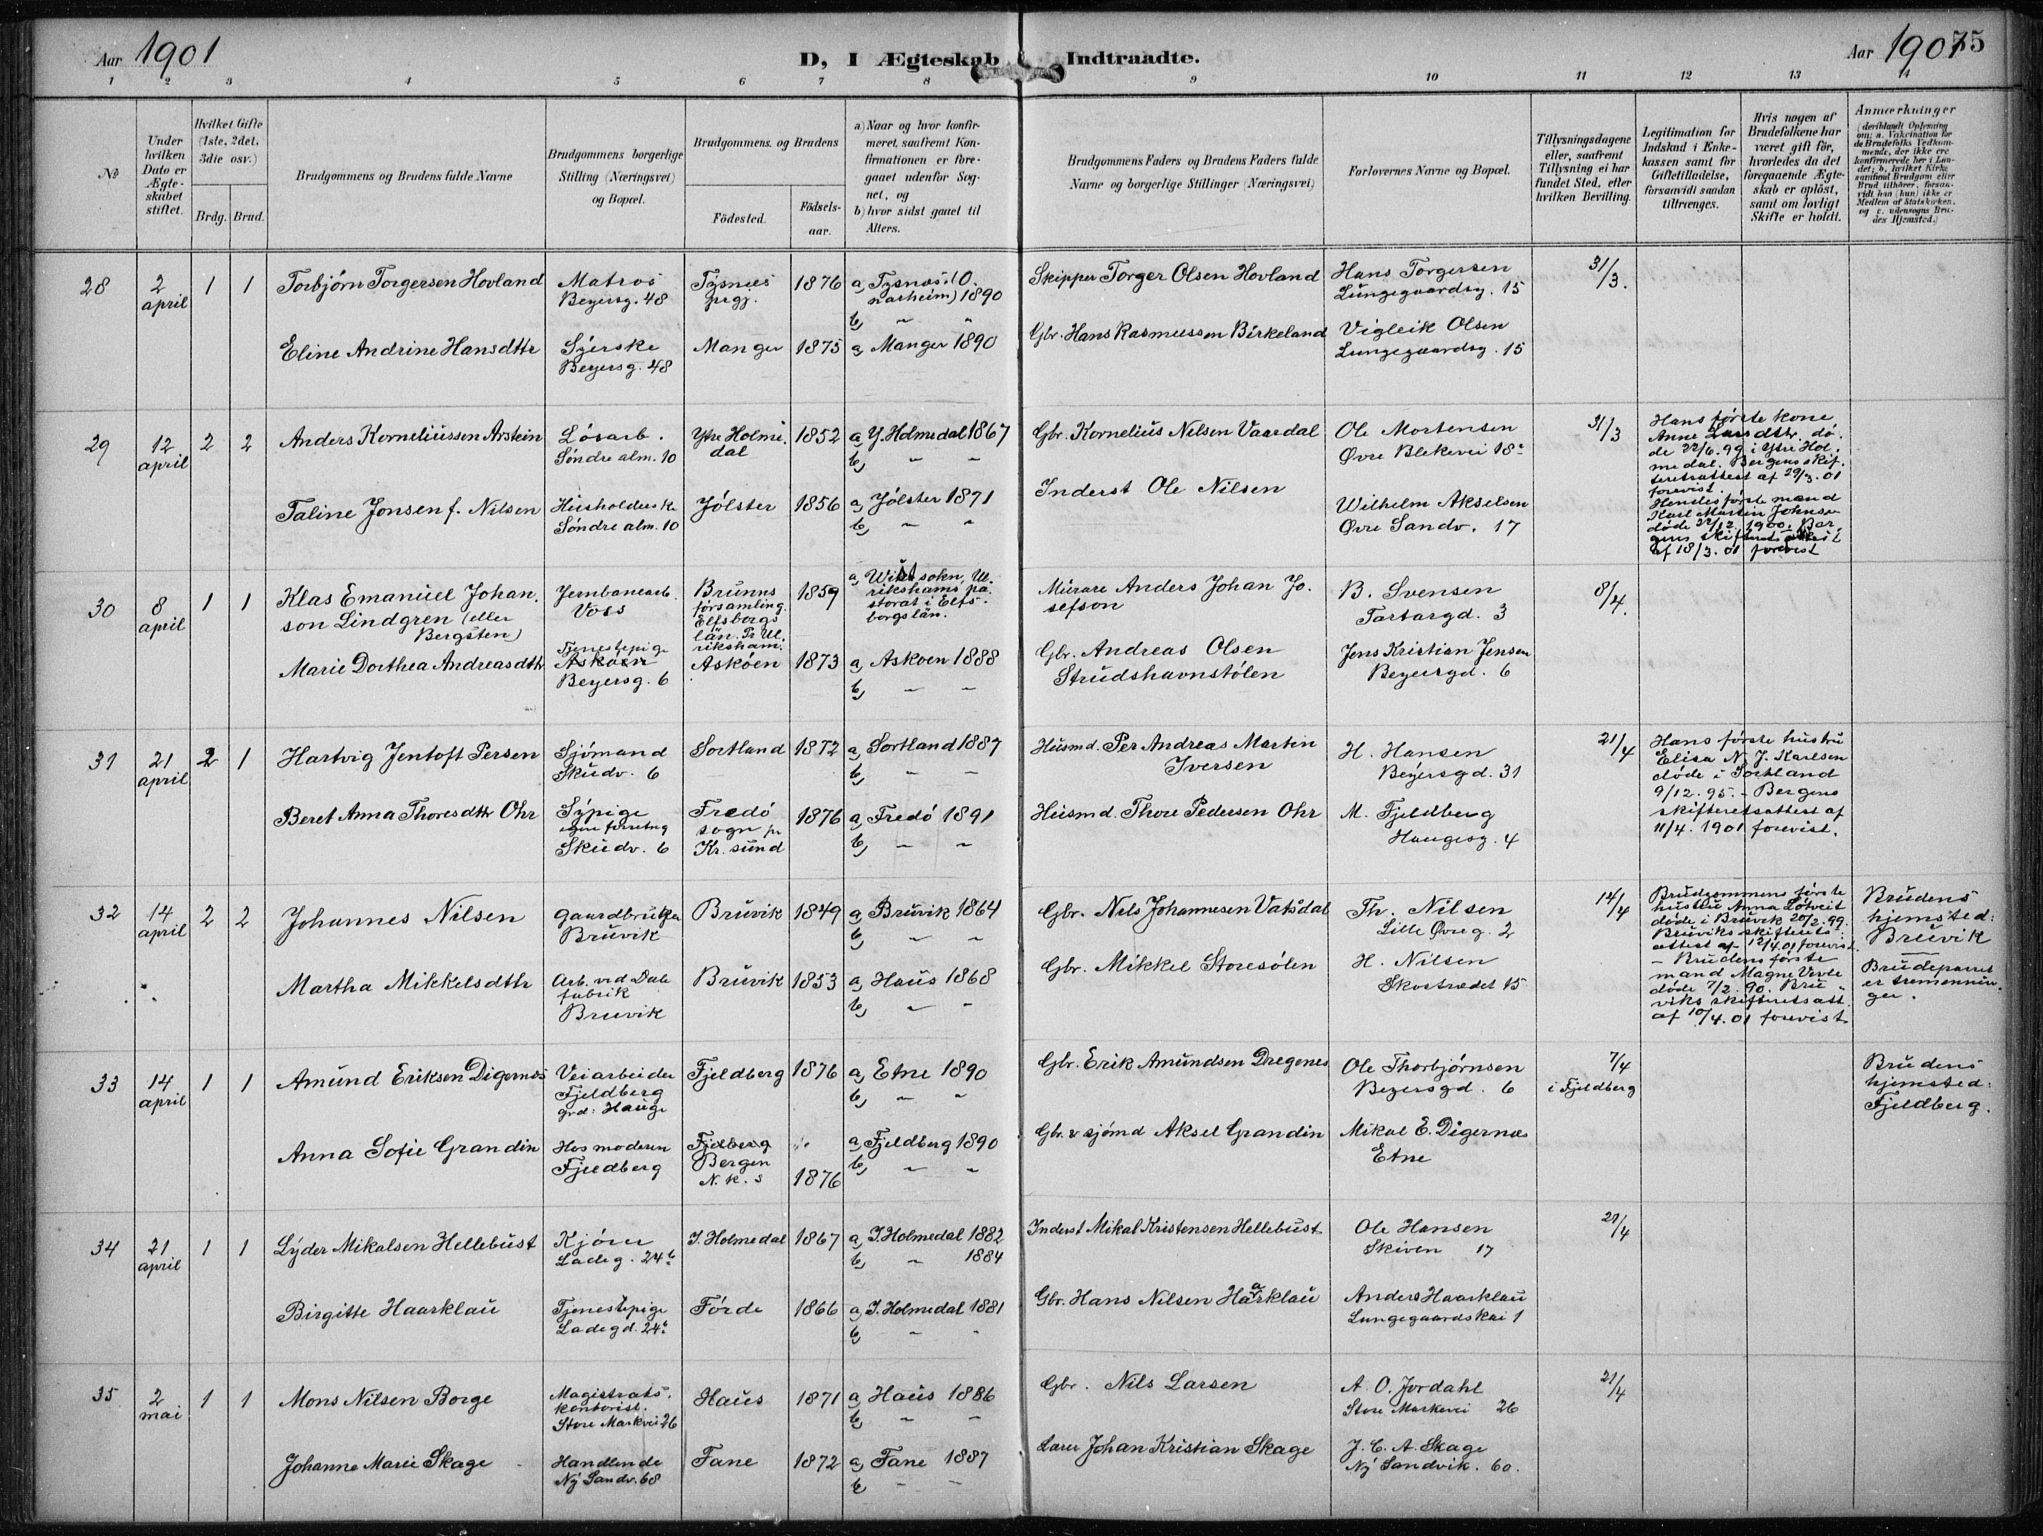 Aar 1901
D, I Ægteskab Indtraadte.
Aar 1901
75
1 2 3 4 5 6 7 8 9 10 11 12 13 14
No
Under hvilken Dato er Ægteskabet stiftet.
Hvilket Gifte (1ste, 2det, 3die osv.)
Brdg. Brud.
Brudgommens og Brudens fulde Navne
Brudgommens borgerlige Stilling (Næringsvei) og Bopæl.
Brudgommens. og Brudens
Fødested.
Fødselsaar.
a) Naar og hvor konfirmeret, saafremt Konfirmationen er foregaaet udenfor Sognet, og
b) hvor sidst gaaet til Alters.
Brudgommens Faders og Brudens Faders fulde Navne og borgerlige Stillinger (Næringsvei)
Forlovernes Navne og Bopæl.
Tillysningsdagene eller, saafremt Tillysning ei har fundet Sted, efter hvilken Bevilling.
Legitimation for Indskud i Enkekassen samt for Giftetilladelse, forsaavidt saadan tiltrænges.
Hvis nogen af Brudefolkene har været gift før, hvorledes da det foregaaende Ægteskab er opløst, samt om lovligt Skifte er holdt.
Anmærkninger
(deriblandt Oplysning om: a. Vakcination for de Brudefolks Vedkommende, der ikke ere konfirmerede her i Landet; b. hvilket Kirkesamfund Brudgom eller Brud tilhører, forsaavidt han (hun) ikke er Medlem af Statskirken, og c. udensogns Brudes Hjemsted.)
28
2 april
1 1
Torbjørn Torgersen Hovland
Matros
Beyersg. 48
Tysnes prgj.
1876
a, Tysnes (O narheim) 1890
b, " "
Skipper Torger Olsen Hovland
Hans Torgersen
Lungegaardsg. 15
31/3.
Eline Andrine Hansdttr
Syerske
Beyersg. 48
Manger
1875
a, Manger 1890
Gbr. Hans Rasmussen Birkeland
Vigleik Olsen
Lungegaardsg. 15
29
12 april
2 2
Anders Korneliussen Arstein
Løsarb.
Søndre alm. 10
Ytre Holmedal
1852
a, Y. Holmedal 1867
b, " "
Gbr. Kornelius Nilsen Vaardal
Ole Mortensen
Øvre Blekevei 18a
31/3
Hans første kone
Anne Larsdttr. dø.
de 22/6. 99 i Ytre Hol.
medal. Bergens skif.
teretsattest af 29/3. 01
forevist.
Hendes første mand
Karl Martin Johnsen
døde 22/12 1900. Ber.
gens skifterets attest
af 18/3. 01 forevist
Taline Jonsen f. Nilsen
Husholderske
Søndre alm. 10
Jølster
1856
a, Jølster 1871
b, " "
Inderst Ole Nilsen
Wilhelm Akselsen
Øvre Sandv. 17
30
8 april
1 1
Klas Emanuel Johan.
son Lindgren (eller
Bergsten)
Jernbanearb.
Voss
Brunns
församling.
Elfsborgs
län. Ps Ul.
riksham.
1859
sokn, Ul.
rikshams pa
storat i Elfs.
borgs län.
Murare Anders Johan Jo.
sefson
B. Svensen
Tartargd. 3
8/4.
Marie Dorthea Andreasdttr
Tjenestepige
Askøen
Beyersg. 6
Askøen
1873
a, Askøen 1888
b, " "
Gbr. Andreas Olsen
Strudshavnstølen
Jens Kristian Jensen
Beyersgd. 6
31
21 april
2 1
Hartvig Jentoft Persen
Sjømand
Skudv. 6
Sortland
1872
a, Sortland 1887
b, " "
Husmd. Per Andreas Martin
Iversen
H. Hansen
Beyersgd. 31
21/4
Hans første hustru
Elisa N. J. Karlsen
døde i Sortland
9/12. 95. – Bergens
skifteretsattest af
11/4. 1901 forevist.
Beret Anna Thoresdttr Ohr
Sypige
egen forretng
Skudv. 6
Fredø
sogn pr
Kr. sund
1876
a, Fredø 1891
b, " "
Husmd. Thore Pedersen Ohr
M. Fjeldberg
Haugesg. 4
32
14 april
2 2
Johannes Nilsen
Gaardbruker
Bruvik
Bruvik
1849
a, Bruvik 1864
b, " "
Gbr. Nils Johannesen Vaksdal
Th. Nilsen
Lille Øvreg. 2
14/4
Brudgommens første
hustru Anna
døde i Bruvik 20/2. 99.
Bruviks skifterets
attest af 12/4. 01 forevist.
– Brudens første
mand Magne
døde 7/2. 90. Bru
viks skifteretsatt.
af 10/4. 01 forevist
Brudens
hjemsted:
Bruvik
Brudeparret
er tremennin.
ger.
Martha Mikkelsdttr
Arb. ved Dale
fabrik
Bruvik
Bruvik
1853
a, Haus 1868
b, " "
Gbr. Mikkel Storesølen
H. Nilsen
Skostrædet 15
33
14 april
1 1
Amund Eriksen Digernes
Veiarbeider
Fjeldberg
grd: Hauge
Fjeldberg
1876
a, Etne 1890
b, " "
Gbr. Erik Amundsen Dregenes
Ole Thorbjørnsen
Beyersgd. 6
7/4
i Fjeldberg
Brudens
hjemsted:
Fjeldberg.
Anna Sofie Grandin
Hos moderen
Fjeldberg
Fjelberg
Bergen
N. k. s
1876
a, Fjeldberg 1890
b, " "
Gbr. & sjømd Aksel Grandin
Mikal E. Digernes
Etne
34
21 april
1 1
Lyder Mikalsen Hellebust
Ladeg. 24b
I. Holmedal
1867
a, I. Holmedal 1882
b, " 1884
Inderst Mikal Kristensen Hellebust
Ole Hansen
Skiven 17
21/4
Birgitte Haarklau
Tjenestepige
Ladegd. 24b
Førde
1866
a, I. Holmedal 1881
b, " "
Gbr. Hans Nilsen Haarklau
Anders Haarklau
Lungegaardskai 1
35
2 mai
1 1
Mons Nilsen Borge
Magistrats.
kontorist.
Store Markvei 26
Haus
1871
a, Haus 1886
b, " "
Gbr. Nils Larsen
A. O. Jordahl
Store Markevei 26
21/4
Johanne Marie Skage
Handlende
Ny Sandv. 68
Fane
1872
a, Fane 1887
b, " "
Lærer Johan Kristian Skage
J. C. A. Skage
Ny Sandvik. 60.